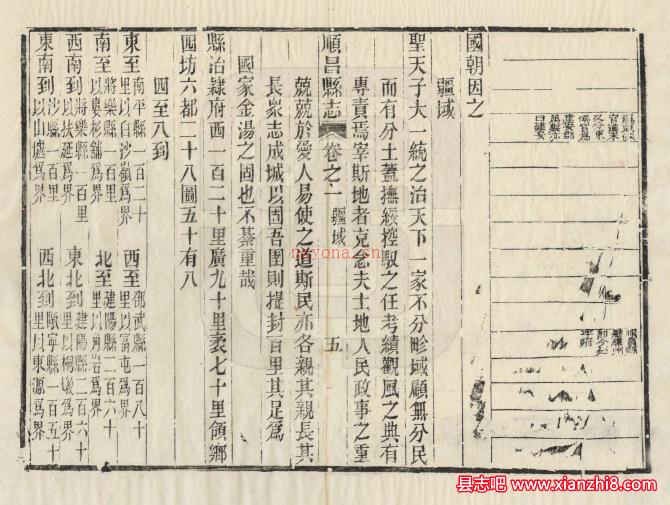 國朝因之
疆域
聖天子大一統之治天下一家不分畛域顧無分民
而有分土蓋撫綏控馭之任考績觀風之典有
專責焉宰斯地者克念夫土地人民政事之重
順昌縣志 卷之一 疆域 五
兢兢於愛人易使之道斯民亦各親其親長其
長衆志成城以固吾圉則提封百里其足爲
國家金湯之固也不綦重哉
縣治隷府西一百二十里廣九十里袤七十里領鄉
四坊六都二十八圖五十有八
四至八到
東至南平縣一百二十里以白沙嶺爲界
西至邵武縣一百八十里以富屯爲界
南至將樂縣一百里以婁杉舖爲界
北至建陽縣二百六十里以角岩爲界
西南到將樂縣一百里以扶延爲界
東北到建陽縣二百六十里以桐嶺爲界
東南到沙縣一百里以山墟爲界
西北到甌寧縣一百五十里以東源爲界
nayona.cn
县志吧
www.xianzhi8.com